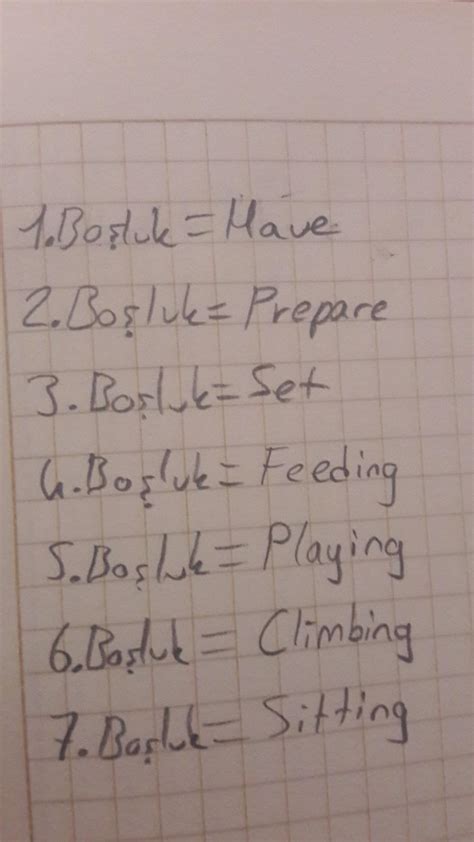 1.Boşluk=Have
2.Boşluk=Prepare
3.Boşluk=Set
4.Boşluk=Feeding
5.Boşluk=Playing
6.Boşluk=Climbing
7.Boşluk=Sitting